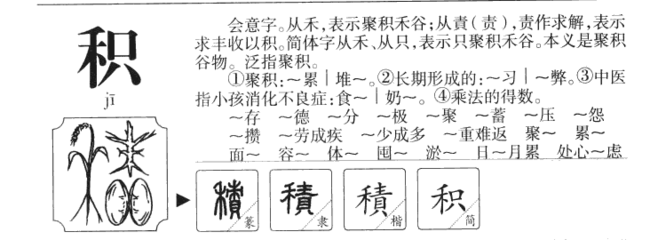 积
jī
会意字。从禾,表示聚积禾谷;从責(责),责作求解,表示
求丰收以积。简体字从禾、从只,表示只聚积禾谷。本义是聚积
谷物。泛指聚积。
①聚积:~累|堆~。②长期形成的:~习|~弊。③中医
指小孩消化不良症:食~|奶~。④乘法的得数。
~存 ~德 ~分 ~极 ~聚 ~蓄 ~压 ~怨
~攒 ~劳成疾 ~少成多 ~重难返 聚~ 累~
面~ 容~ 体~ 囤~ 淤~ 日~月累 处心~虑
積 篆 積 隶 積 楷 积 简